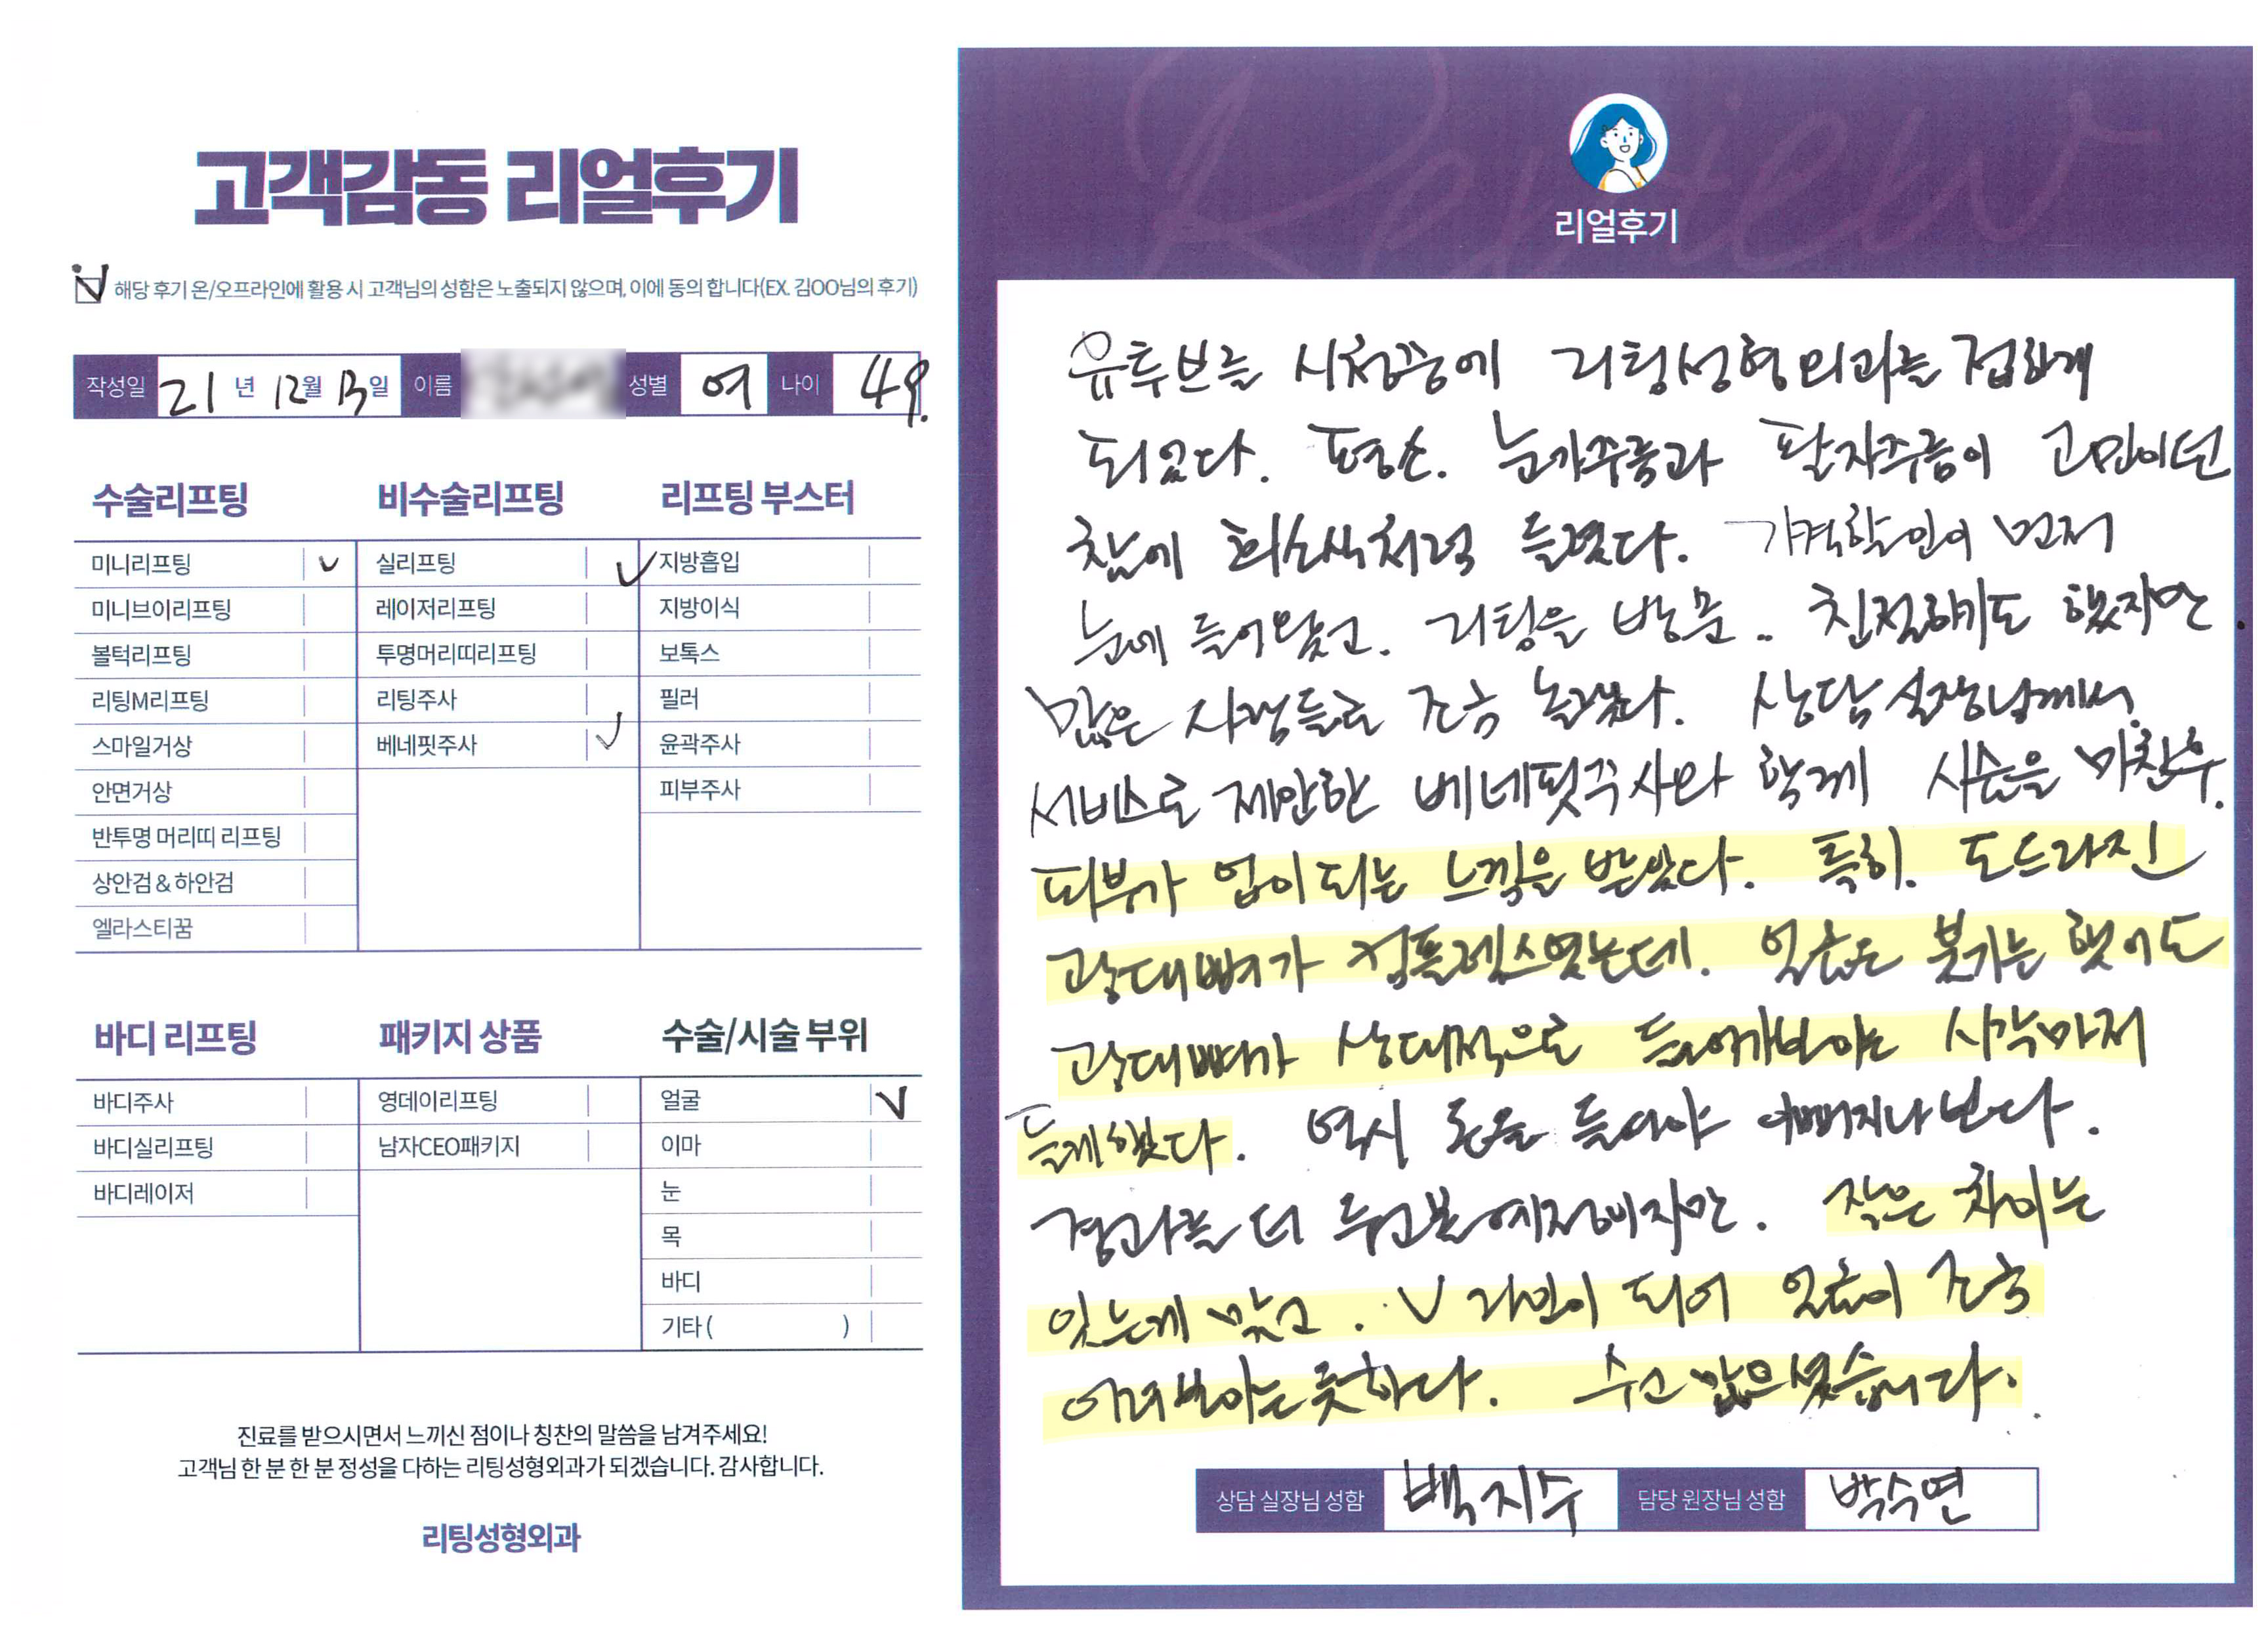 고객감동 리얼후기
해당 후기 온/오프라인에 활용 시 고객님의 성함은 노출되지 않으며, 이에 동의 합니다(EX. 김OO님의 후기)
작성일 21 년 12월 13일 이름 성별 여 나이 49.
수술리프팅
미니리프팅
미니브이리프팅
볼턱리프팅
리팅M리프팅
스마일거상
안면거상
반투명 머리띠 리프팅
상안검 & 하안검
엘라스티꿈
비수술리프팅
실리프팅
레이저리프팅
투명머리띠리프팅
리팅주사
베네핏주사
리프팅 부스터
지방흡입
지방이식
보톡스
필러
윤곽주사
피부주사
바디 리프팅
바디주사
바디실리프팅
바디레이저
패키지 상품
영데이리프팅
남자CEO패키지
수술/시술 부위
얼굴
이마
눈
목
바디
기타 ( )
진료를 받으시면서 느끼신 점이나 칭찬의 말씀을 남겨주세요!
고객님 한 분 한 분 정성을 다하는 리팅성형외과가 되겠습니다. 감사합니다.
리팅성형외과
Review
리얼후기
유투브를 시청중에 리팅성형외과를 접하게
되었다. 평소. 눈가주름과 팔자주름이 고민이던
참에 희소식처럼 들렸다. 가격할인이 먼저
눈에 들어왔고. 리팅을 방문.. 친절하기도 했지만
많은 사람들로 조금 놀랬다. 상담실장님께서
서비스로 제안한 베네핏주사와 함께 시술을 마친후.
피부가 업이 되는 느낌을 받았다. 특히. 도드라진
광대뼈가 컴플렉스였는데. 얼굴은 붓기는 했어도
광대뼈가 상대적으로 들어가보이는 시각마저
들게했다. 역시 돈을 들여야 이뻐지나 보다.
경과를 더 두고볼 예정이지만. 작은 차이는
있는게 맞고. V라인이 되어 얼굴이 조금
어려보이는 듯하다. 수고 많으셨습니다.
상담 실장님 성함 백지수 담당 원장님 성함 박수연